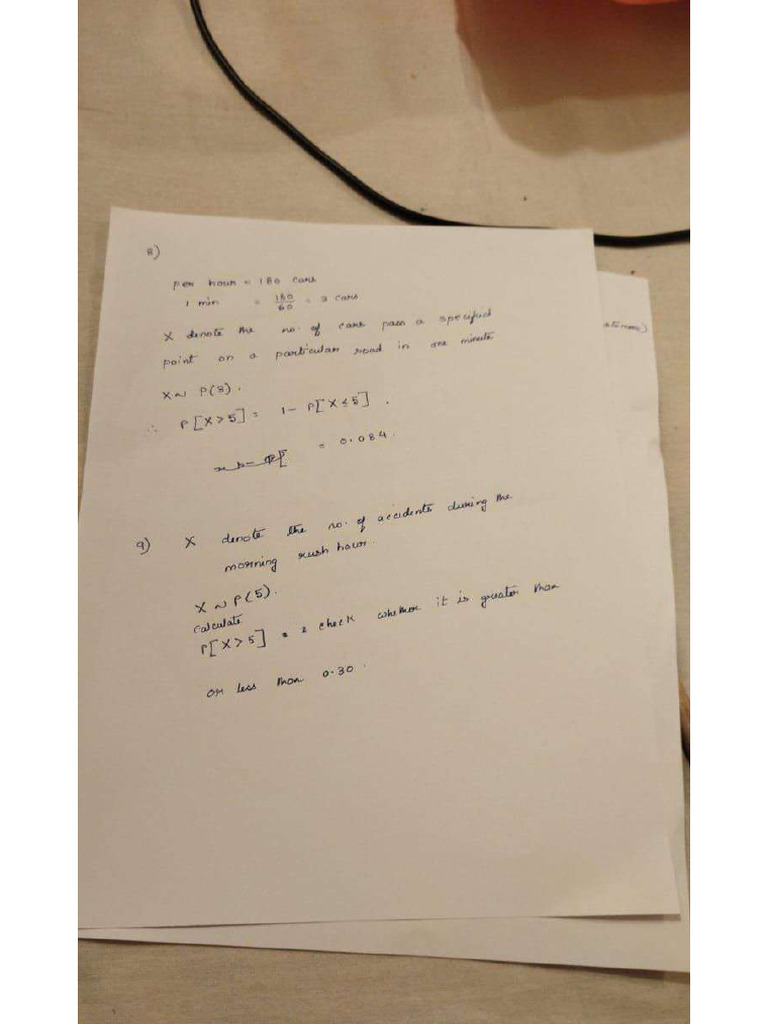 8)
per hour = 180 cars
1 min = 180/60 = 3 cars
X denote the no. of cars pass a specified
point on a particular road in one minute
X ~ P(3).
∴ P[X>5] = 1 - P[X≤5].
= 0.084.
9) X denote the no. of accidents during the
morning rush hour.
X ~ P(5).
Calculate
P[X>5] & check whether it is greater than
or less than 0.30.